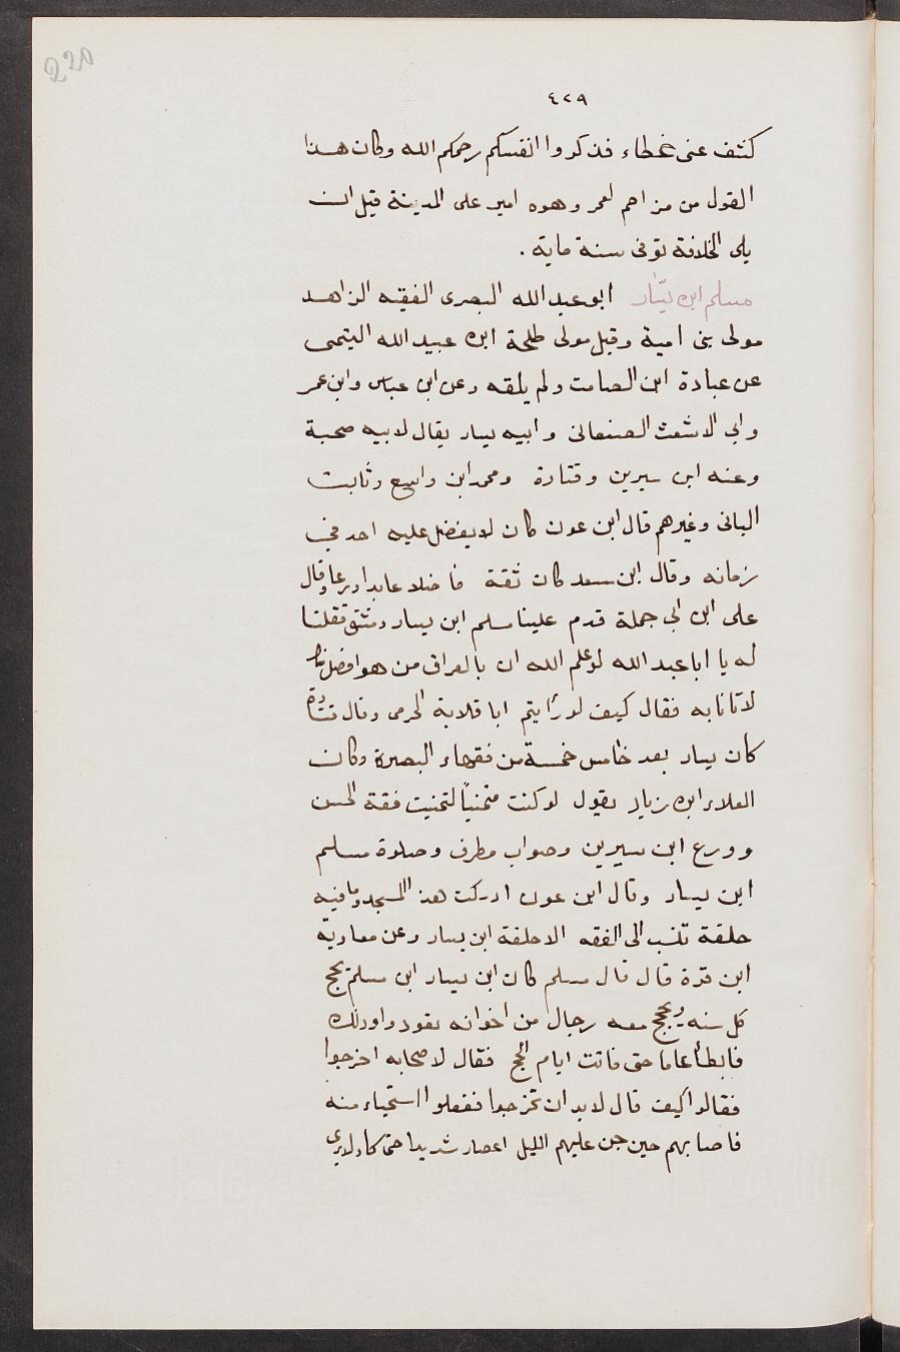 220
٤٢٩
كشف عنى غطاء فذكروا انفسكم رحمكم الله وكان هذا
القول من مزاحم لعمر وهوه امير على المدينة قبل ان
يلى الخلافة توفى سنة ماية .
مسلم ابن يسار ابو عبد الله البصرى الفقيه الزاهد
مولى بنى امية وقيل مولى طلحة ابن عبيد الله التيمى
عن عبادة ابن الصامت ولم يلقه وعن ابن عباس وابن عمر
وابى الاشعث الصنعانى وابيه يسار يقال لابيه صحبة
وعنه ابن سيرين وقتادة ومحمد ابن واسع وثابت
البانى وغيرهم قال ابن عون كان لا يفضل عليه احد في
زمانه وقال ابن سعد كان ثقة فاضلا عابدا ورعا وقال
على ابن ابى جملة قدم علينا مسلم ابن يسار دمشق فقلنا
له يا ابا عبد الله لو علم الله ان بالعراق من هو افضل منك
لاتانا به فقال كيف لو رأيتم ابا قلابة الجرمى وقال قتادة
كان يسار يعد خامس خمسة من فقهاء البصرة وكان
العلاء ابن زياد يقول لو كنت متمنيا لتمنيت فقه الحسن
وورع ابن سيرين وصواب مطرف وصلوة مسلم
ابن يسار وقال ابن عون ادركت هذا المسجد وما فيه
حلقة تنسب الى الفقه الا حلقة ابن يسار وعن معاوية
ابن قرة قال قال مسلم كان ابن يسار ابن مسلم يحج
كل سنه ويحجج معه رجال من اخوانه تعودوا وذلك
فابطأ عاما حتى فاتت ايام الحج فقال لاصحابه اخرجوا
فقالوا كيف قال لا بد ان تخرجوا ففعلوا استحياء منه
فاصابهم حين جن عليهم الليل اعصار شديدا حتى كاد لا يرى